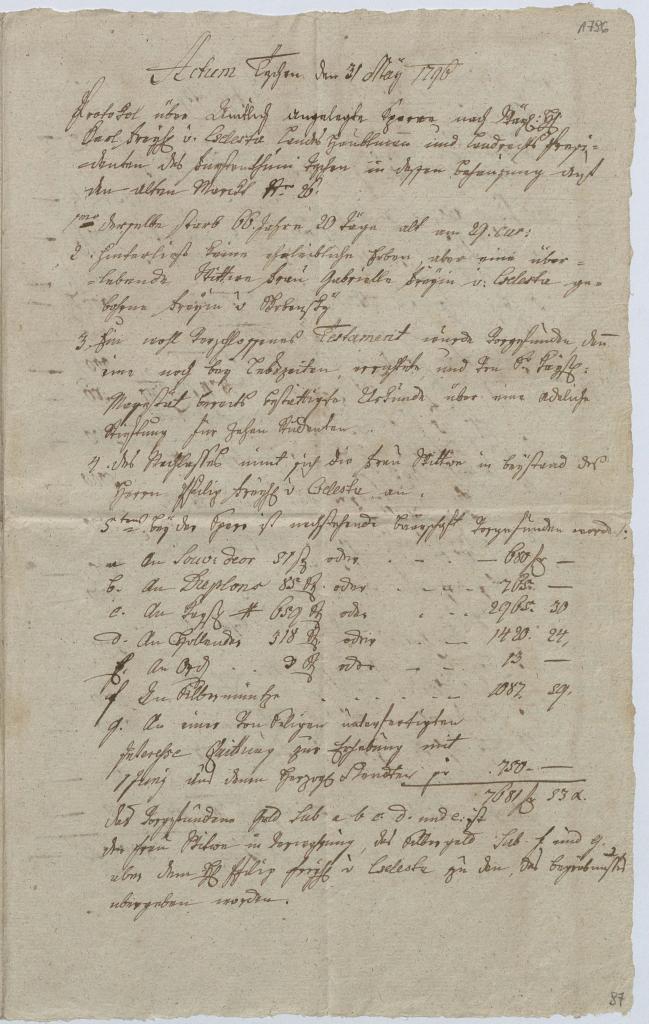 1796
Actum Teschen den 31 May 1796
Protokol über Amtlich angelegte Sperre nach
Carl Freyh v. Celesta Landes Hauptmann und Landrechts Præsi-
-denten des Fürstenthum Teschen in dessen Behausung auf
den alten Markt Nro 26.
1mo derselbe starb 66 Jahre 20 Täge alt am 29. cur:
2. Hinterließ keine eheleibliche Erben, aber eine über-
-lebende Wittwe Frau Gabrielle Freyin v. Celesta ge-
bohrne Freyin v
3. Ein wohl verschlossenes Testament wurde vorgefunden, dann
eine noch bey Lebszeiten errichtete und von Sr Kays:
Mayestät bereits bestättigte Urkunde über eine adeliche
Stiftung für zehen Studenten.
4. des Nachlasses nimt sich die Frau Wittwe in beystand des
Herrn Philip Freyh v Celesta an.
5tens bey der Sperr ist nachstehende Baarschaft vorgefunden worden:
a An Souv: deor 51 St oder - - - 680 f —
b. An 85 St. oder - - - 765. —
c. An Kays # 659 St oder - - 2965. 30
d. An Hollender 318 St oder - - 1420. 24,
An 3 St oder - - 13 —
f An Silbermüntze - - - 1087. 59.
g. An einer von Seligen unterfertigten
Interesse Quittung zur Erhebung mit
1 Juny aus denen Herzogl Renten pr 750 — —
7681 f 53 x.
das vorgefundene Geld Sub a b c. d. und e. ist
der Frau Witwe in Verwahrung, das Silbergeld Sub f und g
aber dem H Philip Freyh v Celesta zu den
übergeben worden.
87